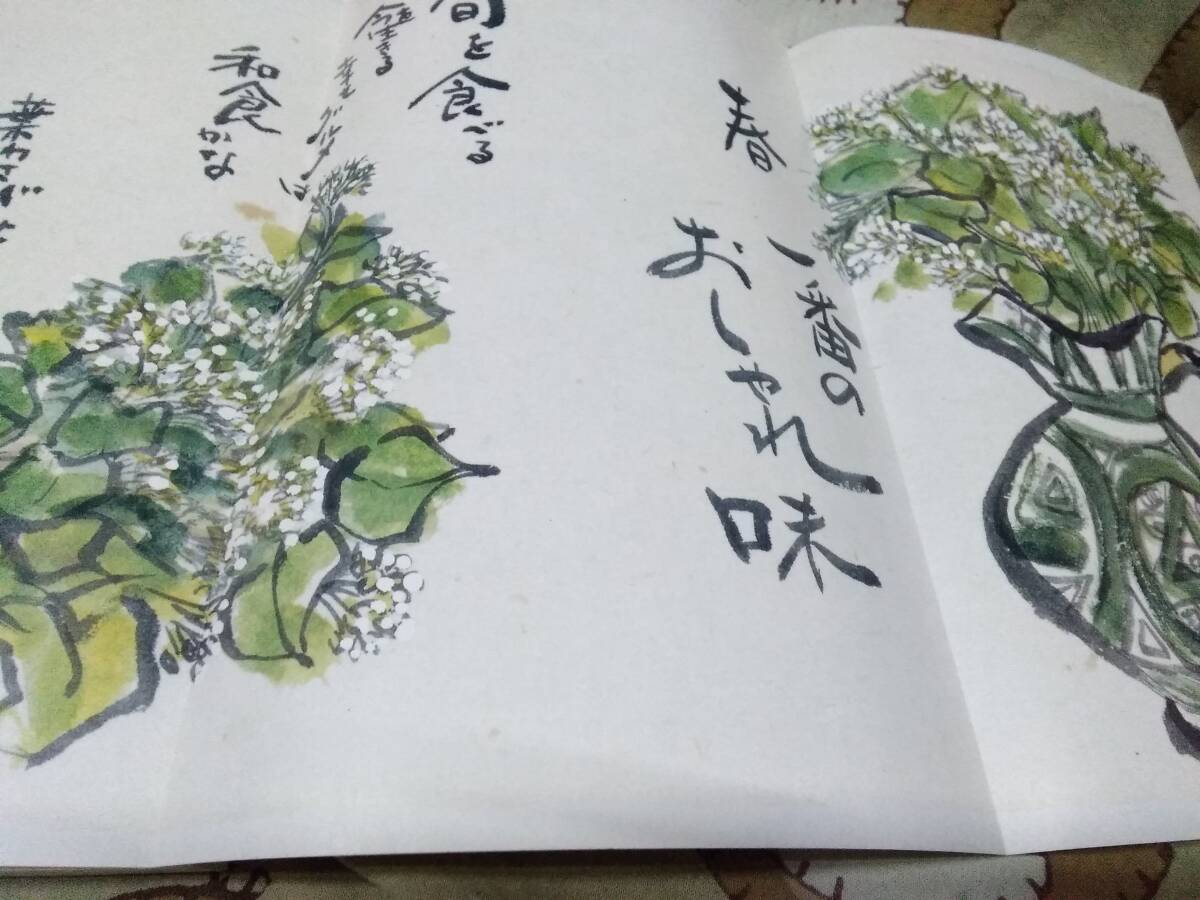 春
一番の
おしゃれ
味
旬を食べる
和食
かな
葉わさび